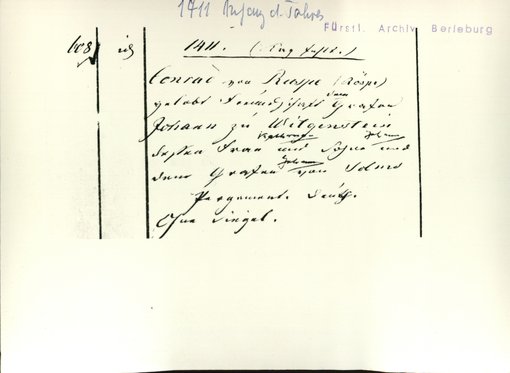 1411 Anfang d. Jahres
Fürstl. Archiv Berleburg
608 1411. (: Tag fehlt.)
Conrad von Raspe (Röspe)
gelobt Freundschaft dem Grafen
Johann zu Witgenstein
dessen Frau Katharina und Sohne Johann und
dem Grafen Johann von Solms
Pergament. Deutsch.
Ohne Siegel.